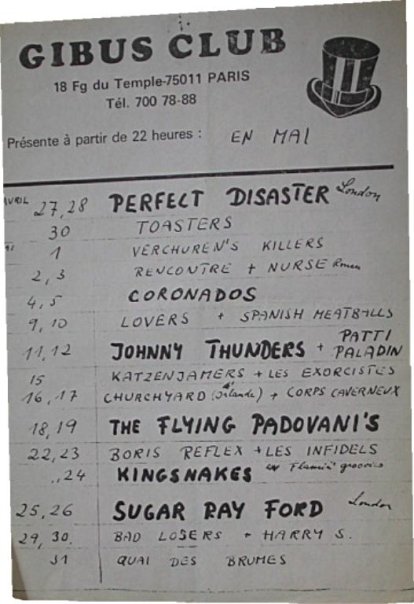 GIBUS CLUB
18 Fg du Temple-75011 PARIS
Tél. 700 78-88
Présente à partir de 22 heures : EN MAI
AVRIL 27,28 PERFECT DISASTER London
30 TOASTERS
1 VERCHUREN'S KILLERS
2,3 RENCONTRE + NURSE Rouen
4,5 CORONADOS
9,10 LOVERS + SPANISH MEATBALLS
11,12 JOHNNY THUNDERS + PATTI PALADIN
15 KATZENJAMERS + LES EXORCISTES
16,17 CHURCHYARD (d'Irlande) + CORPS CAVERNEUX
18,19 THE FLYING PADOVANI'S
22,23 BORIS REFLEX + LES INFIDELS
24 KINGSNAKES ex Flamin' groovies
25,26 SUGAR RAY FORD London
29,30 BAD LOSERS + HARRY S.
31 QUAI DES BRUMES